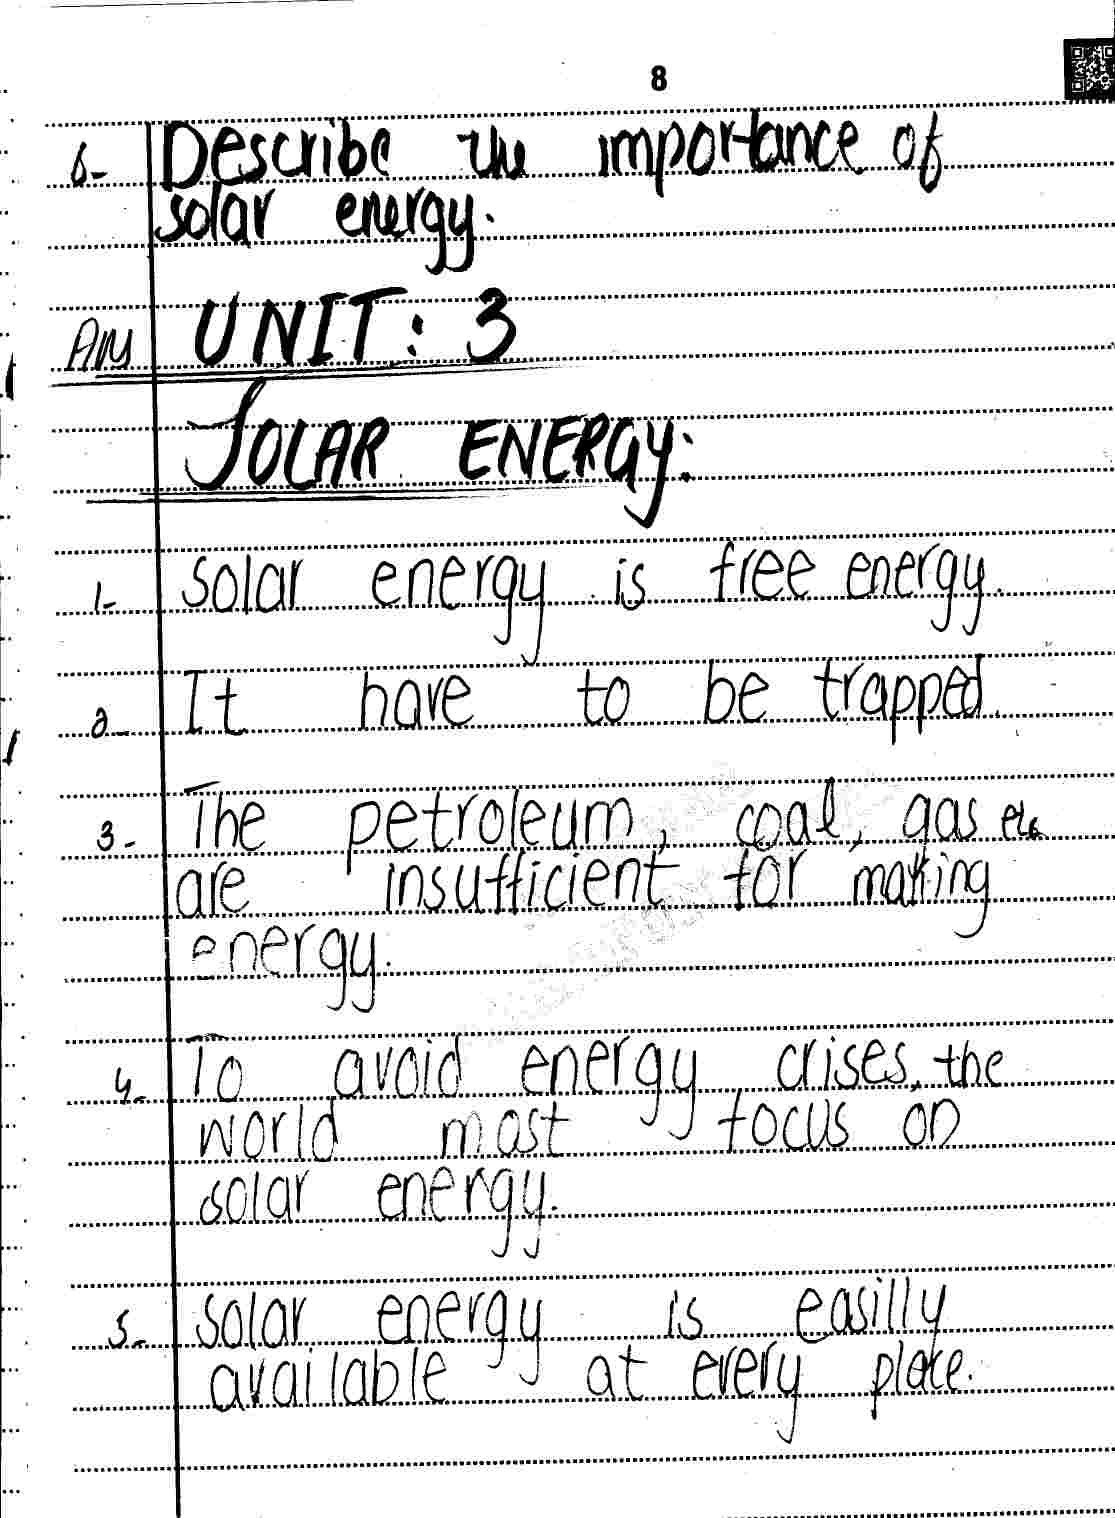 8
6- Describe the importance of
solar energy.
Ans UNIT: 3
SOLAR ENERGY:
1- solar energy is free energy.
2- It have to be trapped.
3- The petroleum, coal, gas etc
are insufficient for making
energy.
4- To avoid energy crises, the
world most focus on
solar energy.
5- solar energy is easilly
available at every place.